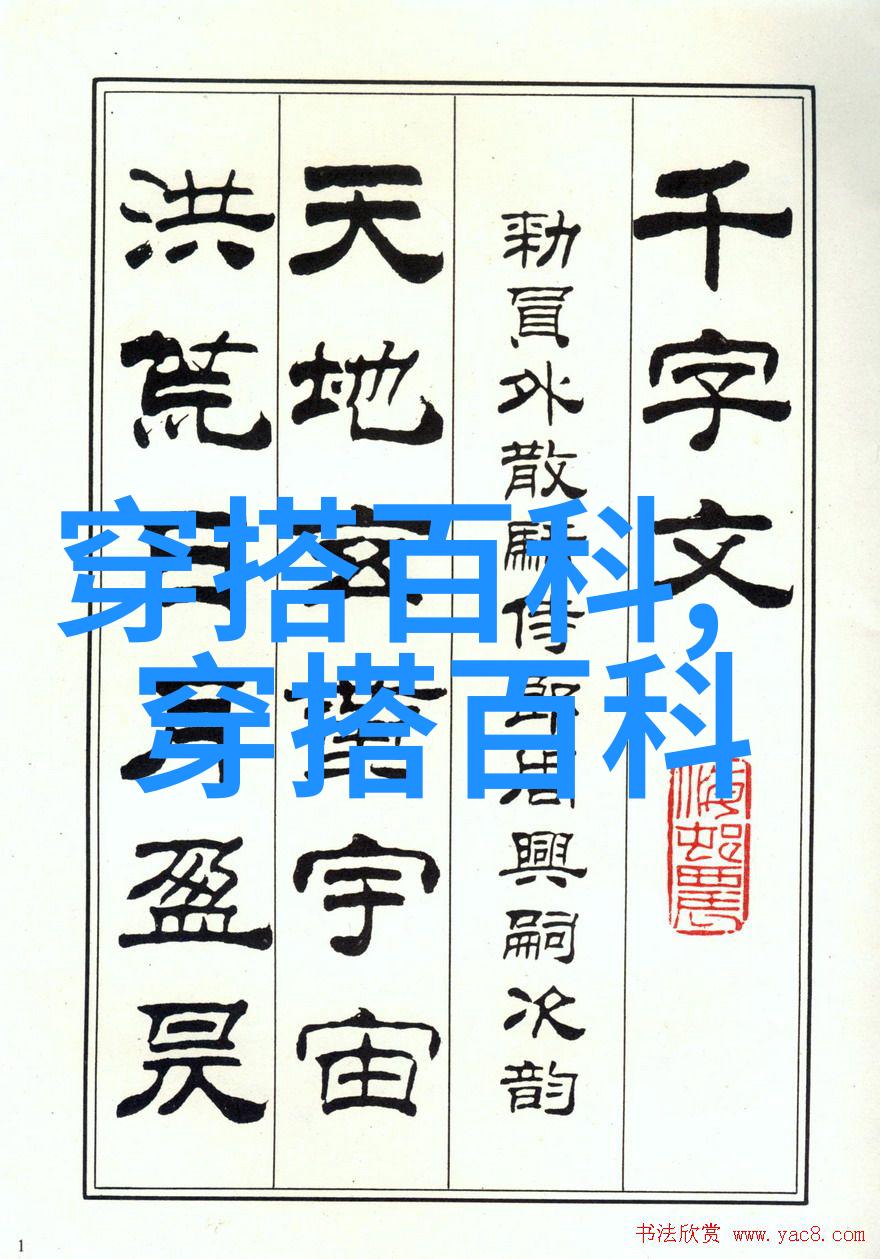 千字文
勑員外散騎侍郎周興嗣次韵
天地玄黃宇宙
洪荒日月盈昃
穿搭百科,
穿搭百科
1
书法欣赏 www.yac8.com